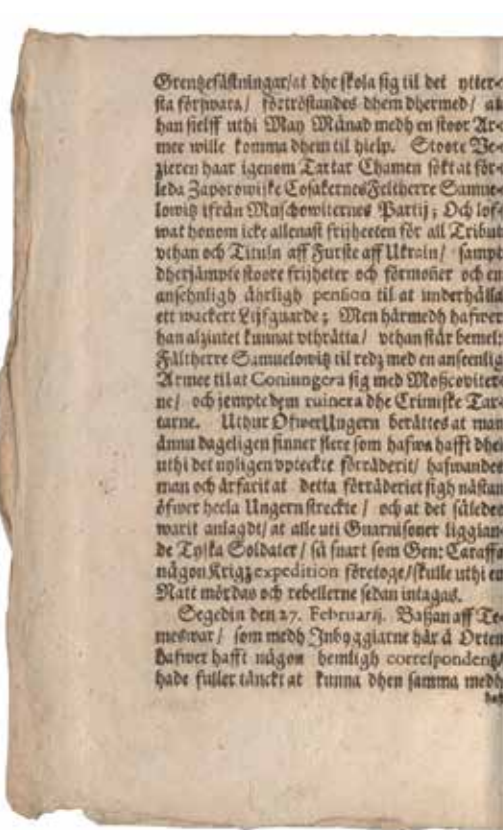 Grentzefästningar/at dhe skola sig til det ytter-
sta förswara/ förtröstandes dhem dhermed/ at
han sielff uthi May Månad medh en stoor Ar-
mee wille komma dhem til hielp. Stoore Ve-
zieren haar igenom Tartar Chamen sökt at för-
leda Zaporowiske Cosakernes Feltherre Samue-
lowitz ifrån Muschowiternes Partij; Och lof-
wat honom icke allenast frijheeten för all Tribut
vthan och Tituln aff Furste aff Ukrain/ sampt
dherjämpte stoore frijheter och förmoner och en
ansehnligh ährligh pension til at underhålla
ett wackert Lijfguarde; Men härmedh hafwer
han alzintet kunnat vthrätta/ vthan står bemel:
Fältherre Samuelowitz til redz med en anseenlig
Armee til at Coniungera sig med Moßcoviter-
ne/ och jempte dem ruinera dhe Crimiske Tar-
tarne. Uthur ÖfwerUngern berättes at man
ännu dageligen finner flere som hafwa hafft dhel
uthi det nyligen vpteckte förräderit/ hafwandes
man och ärfarit at detta förräderiet sigh nästan
öfwer heela Ungern streckte/ och at det således
warit anlagdt/ at alle uti Guarnisoner liggian-
de Tyska Soldater/ så snart som Gen: Caraffa
någon Krigzexpedition företoge/skulle uthi en
Natt mördas och rebellerne sedan intagas.
Segedin den 27. Februarij. Baßan aff Te-
meswar/ som medh Inbyggiarne här å Orten
hafwer hafft någon hemligh correspondentz/
hade fuller tänckt at kunna dhen samma medh